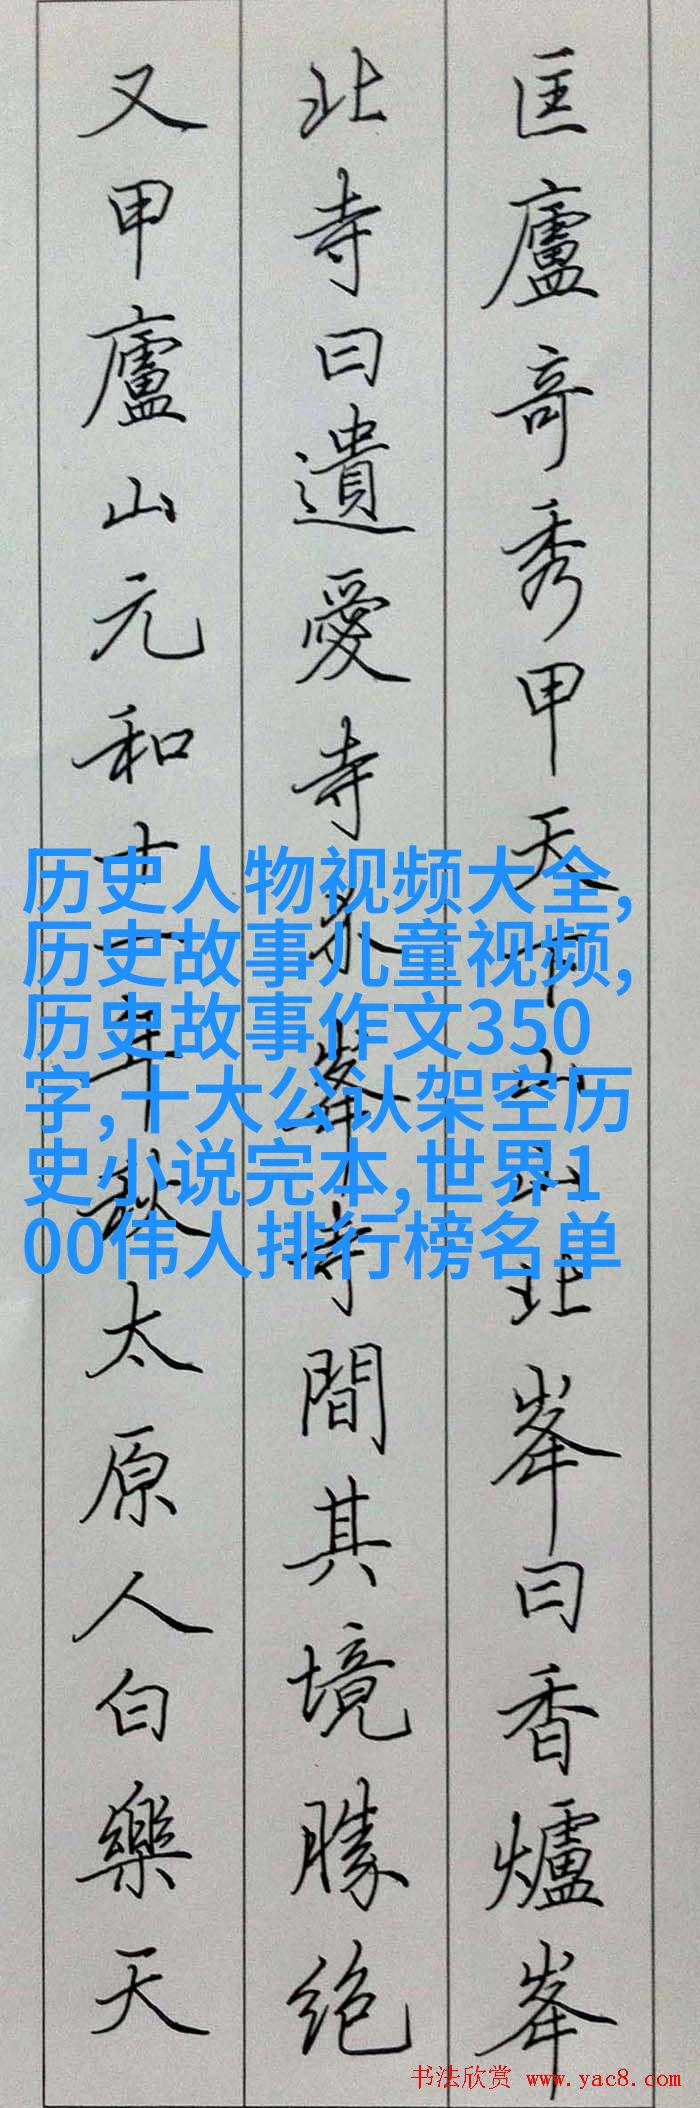 匡廬奇秀甲天下山山北峯曰香爐峯
北寺曰遺愛寺介峯寺間其境勝絶
又甲廬山元和十一年秋太原人白樂天
历史人物视频大全,
历史故事儿童视频,
历史故事作文350
字,十大公认架空历
史小说完本,世界1
00伟人排行榜名单
书法欣赏 www.yac8.com